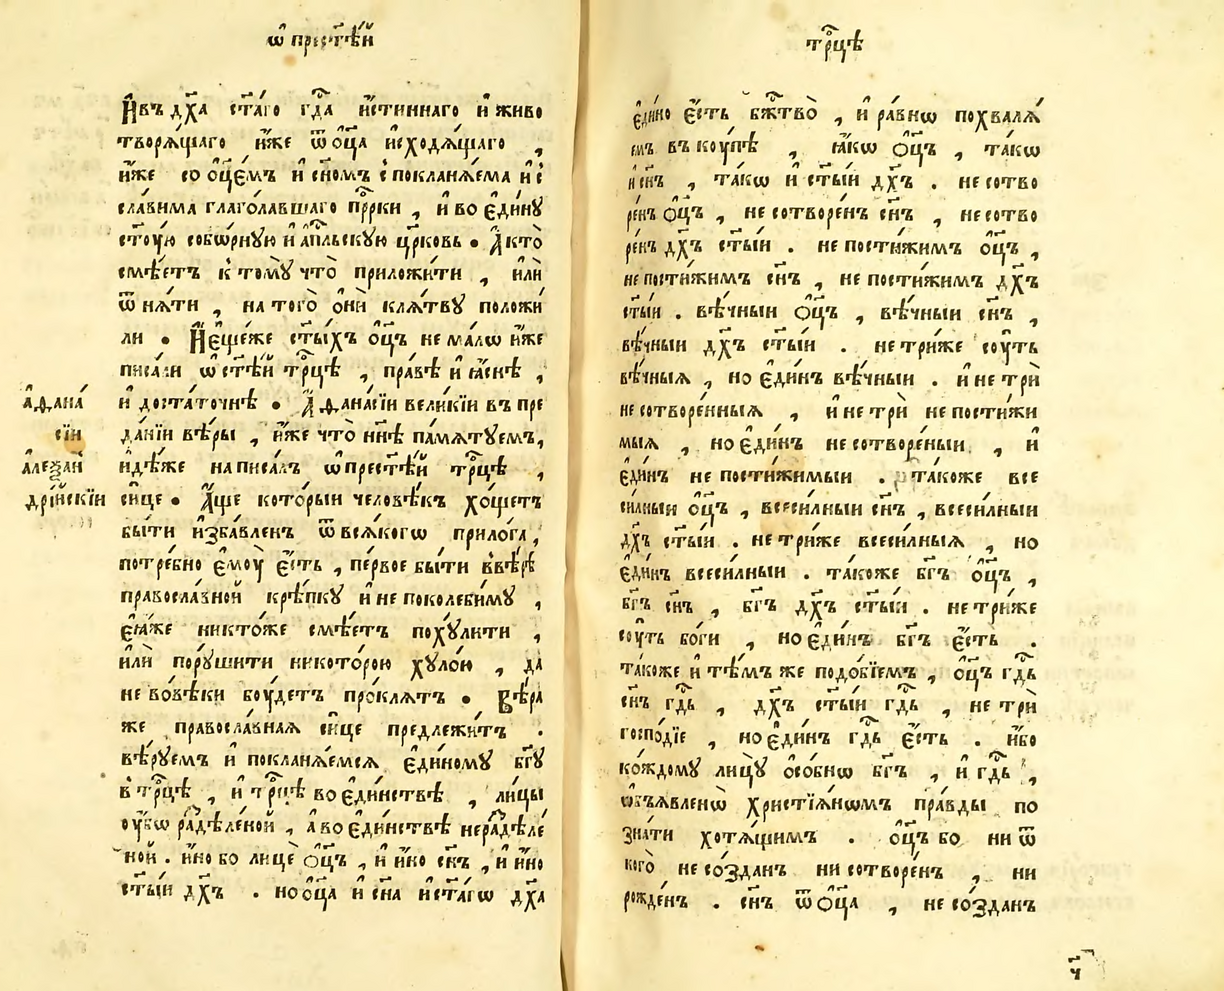 ѡ҆ прест҃ѣ́й
И҆ въ дх҃а ст҃а́го гдⷭ҇а и҆́стиннаго и҆ живо
творѧ́щаго и҆́же ѿ ѻ҆ц҃а̀ и҆сходѧ́щаго ,
и҆́же со ѻ҆ц҃е́мъ и҆ сн҃омъ спокланѧ́ема и҆ с
сла́вима глаго́лавшаго прⷪ҇рки , и҆ во є҆ди́нꙋ
ст҃о́ую собо́рную и҆ а҆пⷭ҇льскую цр҃ковь • А҆ кто̀
смѣ́етъ к томꙋ̀ что̀ приложи́ти , и҆лѝ
ѿнѧ́ти , на того̀ ѻ҆нѝ клѧ́твꙋ положи́
ли • И҆ є҆ще́же ст҃ы́хъ ѻ҆ц҃ъ нема́лѡ и҆́же
писа́ли ѡ҆ ст҃ѣ́й трⷪ҇цѣ , пра́вѣ и҆ ꙗ҆́снѣ ,
и҆ доста́точнѣ • А҆ѳана́сїи вели́кїи въ пре
да́нїи вѣ́ры , и҆́же что̀ нн҃ѣ па́мѧтꙋемъ,
и҆дѣ́же написа́лъ ѡ҆ прест҃ѣ́й трⷪ҇цѣ ,
си́це • А҆́ще кото́рыи человѣ́къ хо́щетъ
бы́ти и҆зба́вленъ ѿ всѧ́когѡ прило́га ,
потре́бно є҆мо́у є҆́сть , пе́рвое бы́ти в вѣ́рѣ
правосла́вной крѣ́пкꙋ и҆ непоколеби́мꙋ ,
є҆ѧ́же никто́же смѣ́етъ похꙋ́лити ,
и҆лѝ порꙋ́шити никото́рою хꙋло́ю , да
не во́вѣки бо́удетъ про́клѧтъ • Вѣ́ра
же правосла́вная си́це предлежи́тъ .
вѣ́рꙋемъ и҆ покланѧ́емсѧ є҆ди́номꙋ бг҃ꙋ
в трⷪ҇цѣ , и҆ трⷪ҇цѣ во є҆ди́нствѣ , лицы̀
оу҆́бѡ раздѣле́ной , а҆ во є҆ди́нствѣ нераздѣле́
ной . и҆́но бо лицѐ ѻ҆ц҃ъ , и҆ и҆́но сн҃ъ , и҆ и҆́но
ст҃ы́и дх҃ъ . но ѻ҆ц҃а и҆ сн҃а и҆ ст҃а́гѡ дх҃а
а҆ѳана́
сїи
а҆леѯан
дрі́йскїи
трⷪ҇цѣ
є҆ди́но є҆́сть бжⷭ҇тво̀ , и҆ ра́внѡ похвалѧ́
емъ в коу́пѣ , ꙗ҆́кѡ ѻ҆ц҃ъ , та́кѡ
и҆ сн҃ъ , та́кѡ и҆ ст҃ы́и дх҃ъ . не сотво
ре́нъ ѻ҆ц҃ъ , не сотворе́нъ сн҃ъ , не сотво
ре́нъ дх҃ъ ст҃ы́и . не пости́жимъ ѻ҆ц҃ъ ,
не пости́жимъ сн҃ъ , не пости́жимъ дх҃ъ
ст҃ы́и . вѣ́чныи ѻ҆ц҃ъ , вѣ́чныи сн҃ъ ,
вѣ́чныи дх҃ъ ст҃ы́и . не три́же со́уть
вѣ́чныѧ , но є҆ди́нъ вѣ́чныи . и҆ не трѝ
не сотворе́нныѧ , и҆ не трѝ не пости́жи
мыѧ , но є҆ди́нъ не сотворе́ныи , и҆
є҆ди́нъ не пости́жимыи . та́коже все
си́лныи ѻ҆ц҃ъ , всеси́лныи сн҃ъ , всеси́лныи
дх҃ъ ст҃ы́и . не три́же всеси́лныѧ , но
є҆ди́нъ всеси́лныи . та́коже бг҃ъ ѻ҆ц҃ъ ,
бг҃ъ сн҃ъ , бг҃ъ дх҃ъ ст҃ы́и . не три́же
со́уть бо́ги , но є҆ди́нъ бг҃ъ є҆́сть .
та́коже и҆ тѣ́мъ же подо́бїемъ , ѻ҆ц҃ъ гдⷭ҇ь
сн҃ъ гдⷭ҇ь , дх҃ъ ст҃ы́и гдⷭ҇ь , не трѝ
госпо́дїе , но є҆ди́нъ гдⷭ҇ь є҆́сть . и҆́бо
ко́ждомꙋ лицꙋ̀ ѻ҆со́бнѡ бг҃ъ , и҆ гдⷭ҇ь ,
ѡ҆бъѧ́вленѡ христїѧ́нѡмъ пра́вды по
зна́ти хотѧ́щимъ . ѻ҆ц҃ъ бо ни ѿ
кого̀ не со́зданъ ни сотворе́нъ , ни
рожде́нъ . сн҃ъ ѿ ѻ҆ц҃а , не со́зданъ
ч҃